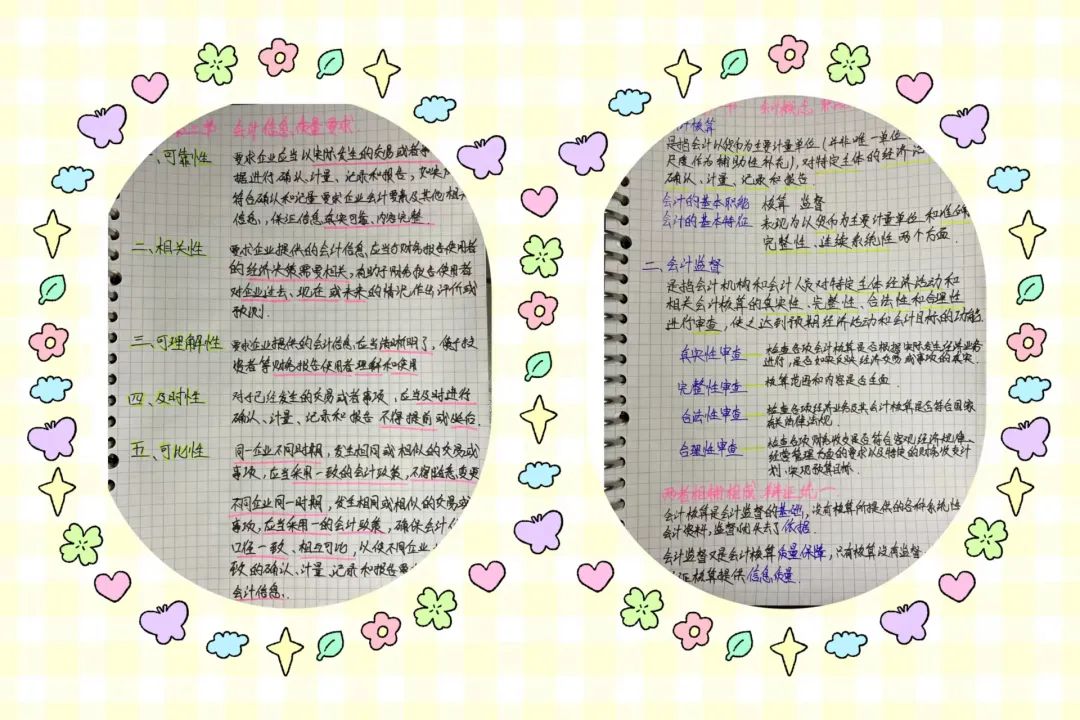 第二节 会计信息质量要求
一、可靠性 要求企业应当以实际发生的交易或者事
据进行确认、计量、记录和报告，如实
符合确认和计量要求企业会计要素及其他相
信息，保证信息真实可靠、内容完整
二、相关性 要求企业提供的会计信息应当与财务报告使用者
的经济决策需要相关，有助于财务报告使用者
对企业过去、现在或未来的情况作出评价或
预测.
三、可理解性 要求企业提供的会计信息应当清晰明了，便于投
资者等财务报告使用者理解和使用
四、及时性 对于已经发生的交易或者事项，应当及时进行
确认、计量、记录和报告 不得提前或延后.
五、可比性 同一企业不同时期，发生相同或相似的交易或
事项，应当采用一致的会计政策，不得随意变更
不同企业同一时期，发生相同或相似的交易或
事项，应当采用一的会计政策，确保会计信
口径一致、相互可比，以使不同企业
致的确认、计量、记录和报告要
会计信息.
会计概念
计核算
是指会计以货币为主要计量单位（并非唯一单位
尺度作为辅助性补充），对特定主体的经济活
确认、计量、记录和报告
会计的基本职能 核算 监督
会计的基本特征 表现为以货币为主要计量单位 和准确
完整性、连续系统性两个方面.
二、会计监督
是指会计机构和会计人员对特定主体经济活动和
相关会计核算的真实性、完整性、合法性和合理性
进行审查，使之达到预期经济活动和会计目标的功能.
真实性审查 检查各项会计核算是否根据实际发生经济业务
进行，是否如实反映经济交易或事项的真实.
完整性审查 核算范围和内容是否全面
合法性审查 检查各项经济业务及其会计核算是否符合国家
相关法律法规.
合理性审查 检查各项财务收支是否符合客观经济规律、
经营管理方面的要求以及特定的财务收支计
划、实现预算目标.
两者相辅相成 辩证统一.
会计核算是会计监督的基础，没有核算所提供的各种系统性
会计资料，监督就失去了依据
会计监督又是会计核算质量保障，只有核算没有监督
证核算提供信息质量.